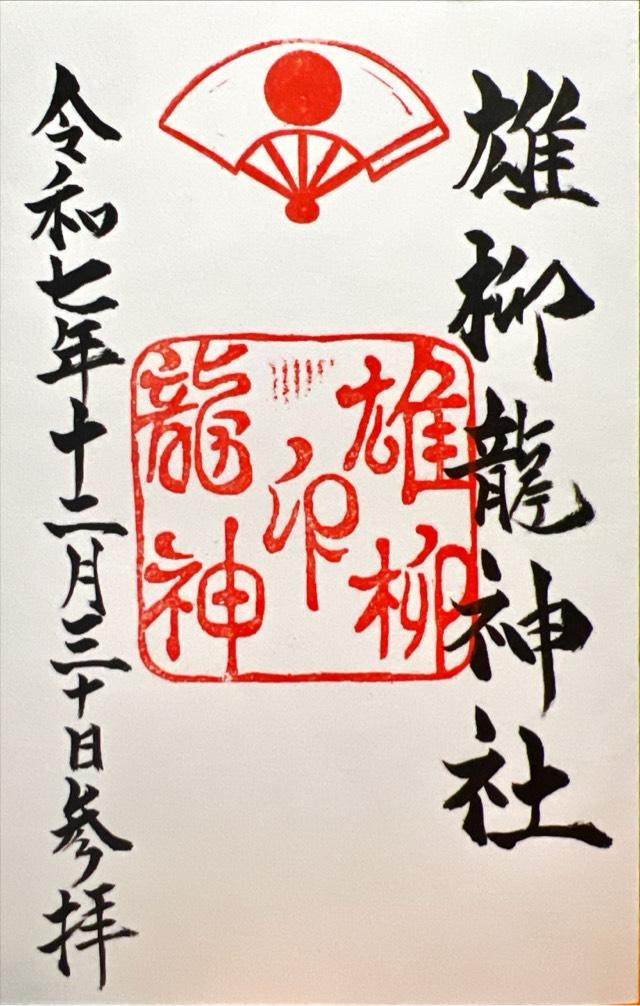 雄柳龍神社
雄柳
印
龍神
令和七年十二月三十日参拝